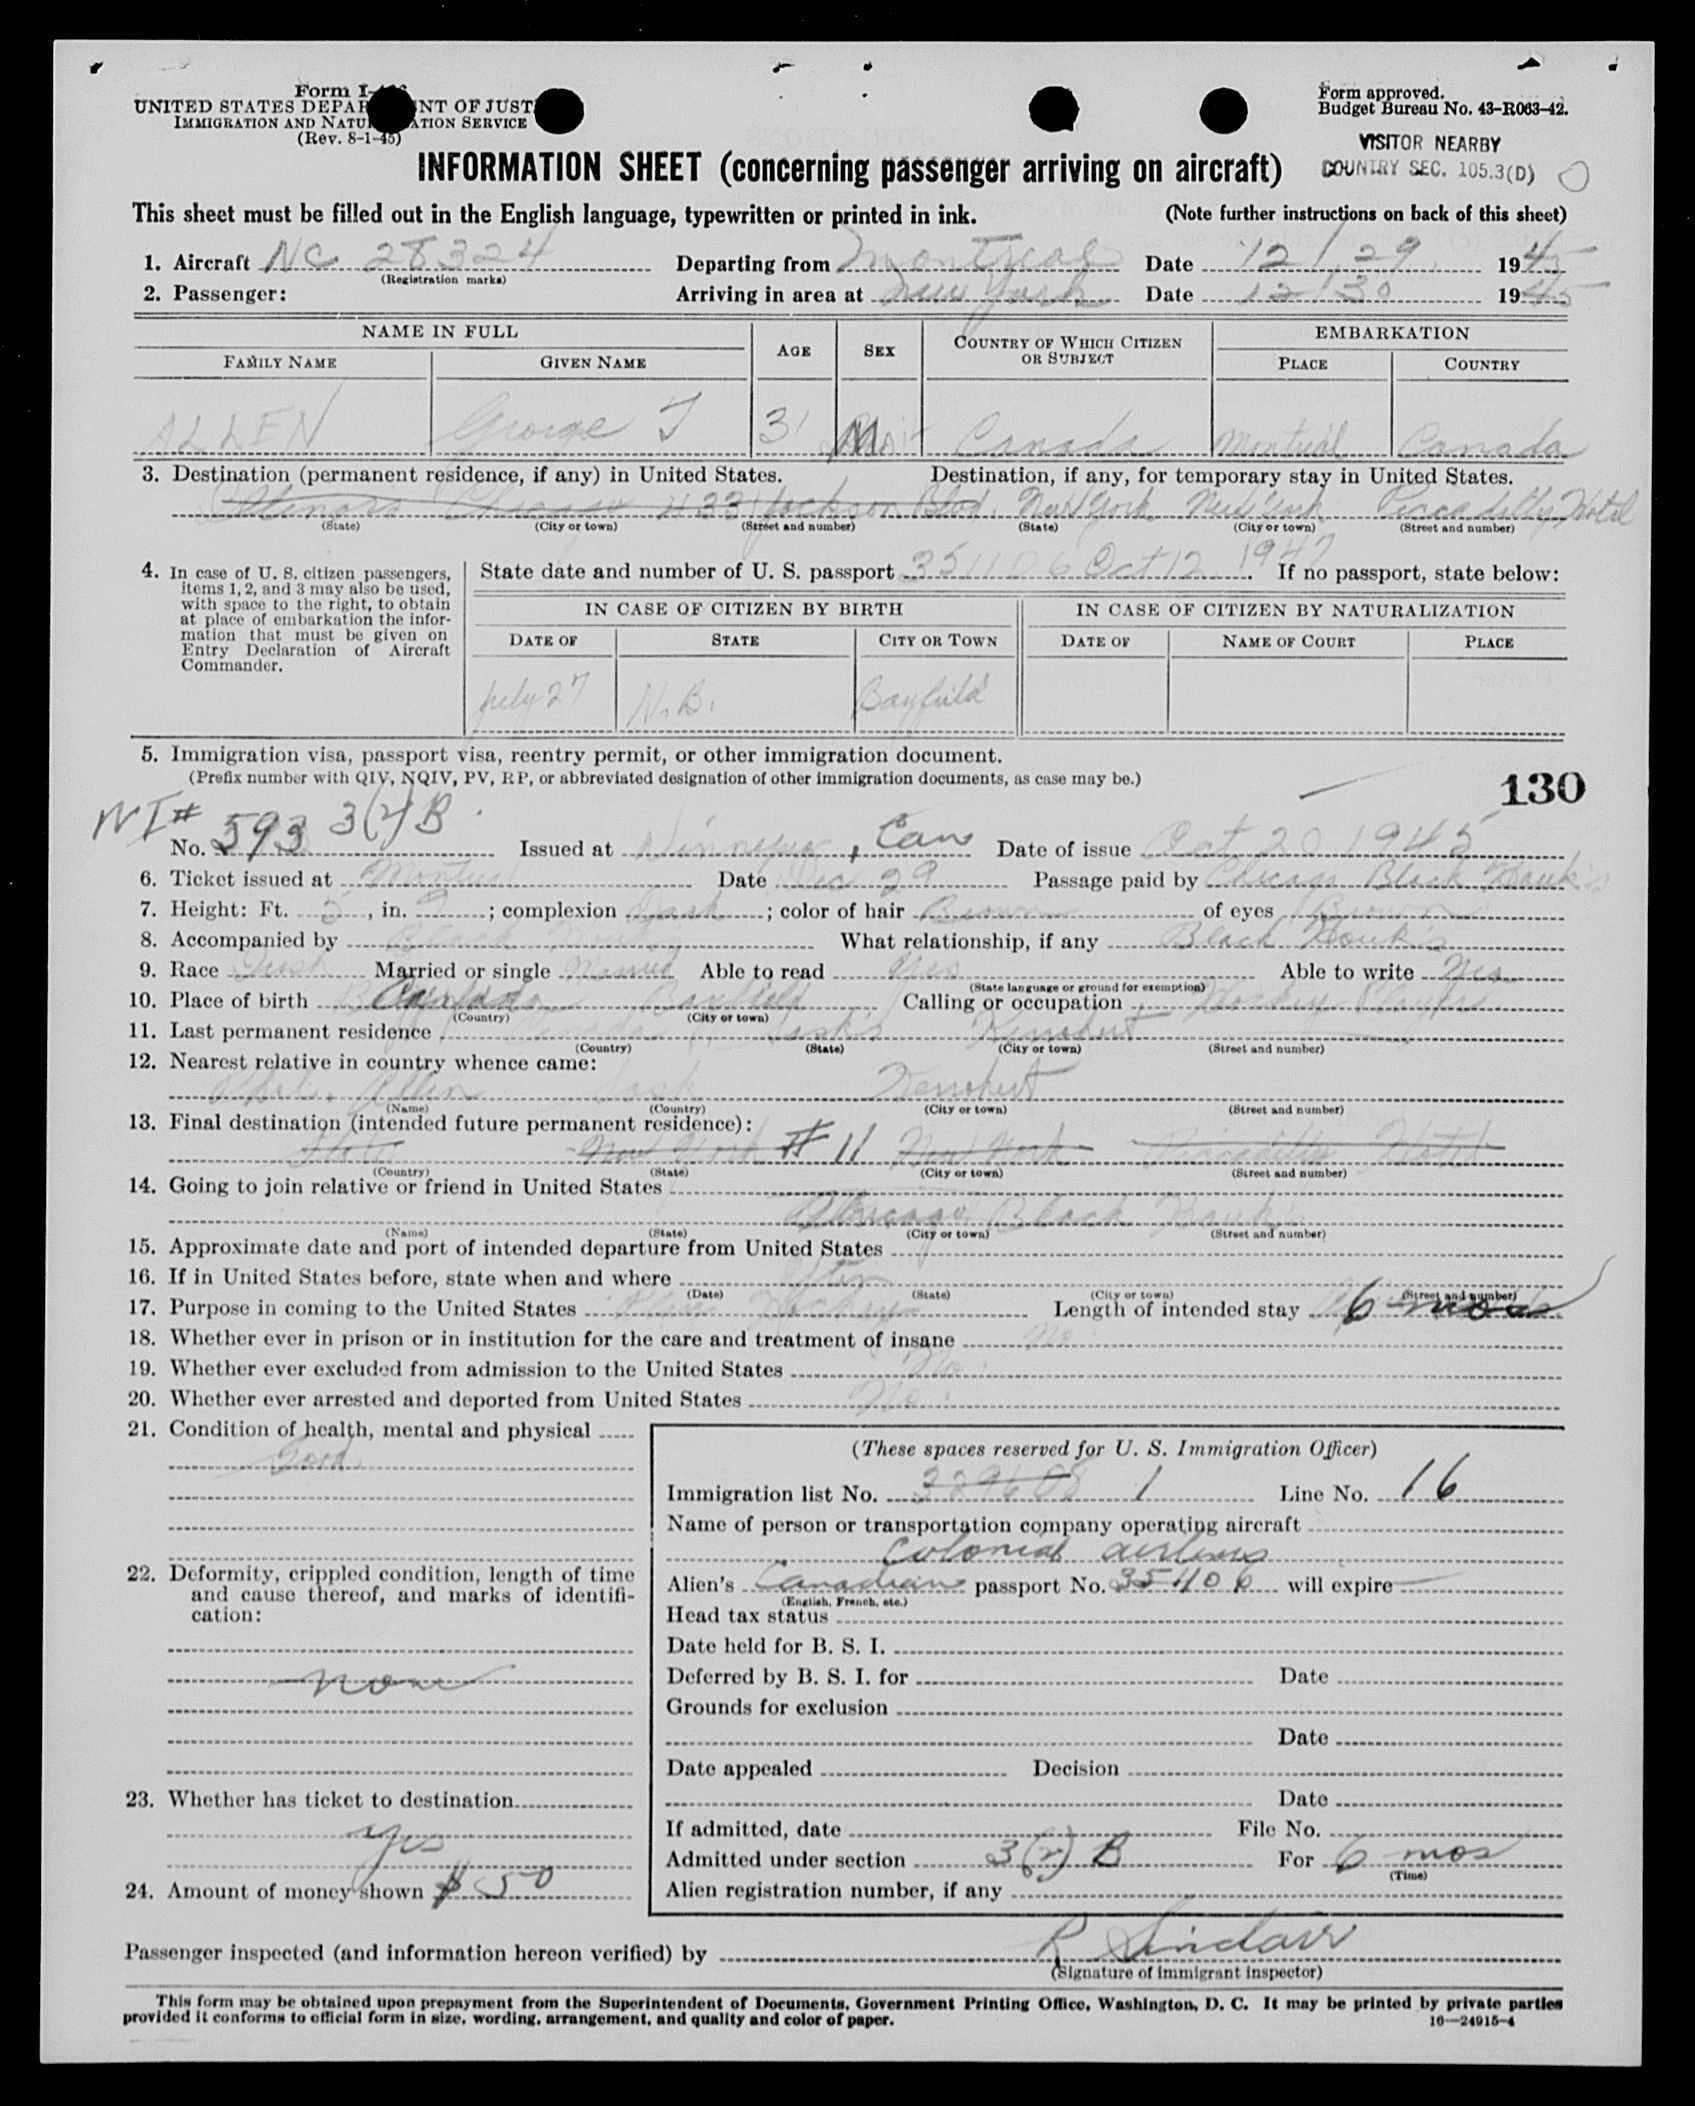 Form I-
UNITED STATES DEPAR NT OF JUST
IMMIGRATION AND NATU ATION SERVICE
(Rev. 8-1-45)
Form approved.
Budget Bureau No. 43-R063-42.
VISITOR NEARBY
COUNTRY SEC. 105.3(D)
INFORMATION SHEET (concerning passenger arriving on aircraft)
This sheet must be filled out in the English language, typewritten or printed in ink. (Note further instructions on back of this sheet)
1. Aircraft NC 28324 Departing from Montreal Date 12/29 1945
(Registration marks)
2. Passenger: Arriving in area at New York Date 12/30 1945
NAME IN FULL AGE SEX COUNTRY OF WHICH CITIZEN OR SUBJECT EMBARKATION
FAMILY NAME GIVEN NAME PLACE COUNTRY
ALLEN George T 31 M Canada Montreal Canada
3. Destination (permanent residence, if any) in United States. Destination, if any, for temporary stay in United States.
Illinois Chicago 433 Jackson Blvd. New York New York Piccadilly Hotel
(State) (City or town) (Street and number) (State) (City or town) (Street and number)
4. In case of U. S. citizen passengers, items 1, 2, and 3 may also be used, with space to the right, to obtain at place of embarkation the information that must be given on Entry Declaration of Aircraft Commander.
State date and number of U. S. passport 351106 Oct 12 1947. If no passport, state below:
IN CASE OF CITIZEN BY BIRTH IN CASE OF CITIZEN BY NATURALIZATION
DATE OF STATE CITY OR TOWN DATE OF NAME OF COURT PLACE
July 27 N.B. Bayfield
5. Immigration visa, passport visa, reentry permit, or other immigration document.
(Prefix number with QIV, NQIV, PV, RP, or abbreviated designation of other immigration documents, as case may be.)
130
NI# 593 3(2)B
No. Issued at Winnipeg, Can Date of issue Oct 20 1945
6. Ticket issued at Montreal Date Dec 29 Passage paid by Chicago Black Hawk's
7. Height: Ft. 5, in. 9; complexion Dark; color of hair Brown of eyes Brown
8. Accompanied by Black What relationship, if any Black Hawk's
9. Race Irish Married or single Married Able to read Yes Able to write Yes
(State language or ground for exemption)
10. Place of birth Canada Bayfield Calling or occupation Hockey Player
(Country) (City or town)
11. Last permanent residence Canada Sask Kerrobert
(Country) (State) (City or town) (Street and number)
12. Nearest relative in country whence came:
Allen Sask Kerrobert
(Name) (Country) (City or town) (Street and number)
13. Final destination (intended future permanent residence):
New York # 11 New York Piccadilly Hotel
(Country) (State) (City or town) (Street and number)
14. Going to join relative or friend in United States
Chicago Black Hawk's
(Name) (State) (City or town) (Street and number)
15. Approximate date and port of intended departure from United States
16. If in United States before, state when and where Often
(Date) (State) (City or town) (Street and number)
17. Purpose in coming to the United States Play Hockey Length of intended stay 6 mos
18. Whether ever in prison or in institution for the care and treatment of insane No
19. Whether ever excluded from admission to the United States No
20. Whether ever arrested and deported from United States No
21. Condition of health, mental and physical
Good
22. Deformity, crippled condition, length of time and cause thereof, and marks of identification:
none
23. Whether has ticket to destination
yes
24. Amount of money shown $ 50
(These spaces reserved for U. S. Immigration Officer)
Immigration list No. 329608 1 Line No. 16
Name of person or transportation company operating aircraft
Colonial airlines
Alien's Canadian passport No. 351106 will expire
(English, French, etc.)
Head tax status
Date held for B. S. I.
Deferred by B. S. I. for Date
Grounds for exclusion
Date
Date appealed Decision
Date
If admitted, date File No.
Admitted under section 3(2) B For 6 mos
(Time)
Alien registration number, if any
Passenger inspected (and information hereon verified) by R Sinclair
(Signature of immigrant inspector)
This form may be obtained upon prepayment from the Superintendent of Documents, Government Printing Office, Washington, D. C. It may be printed by private parties
provided it conforms to official form in size, wording, arrangement, and quality and color of paper. 16—24915-4